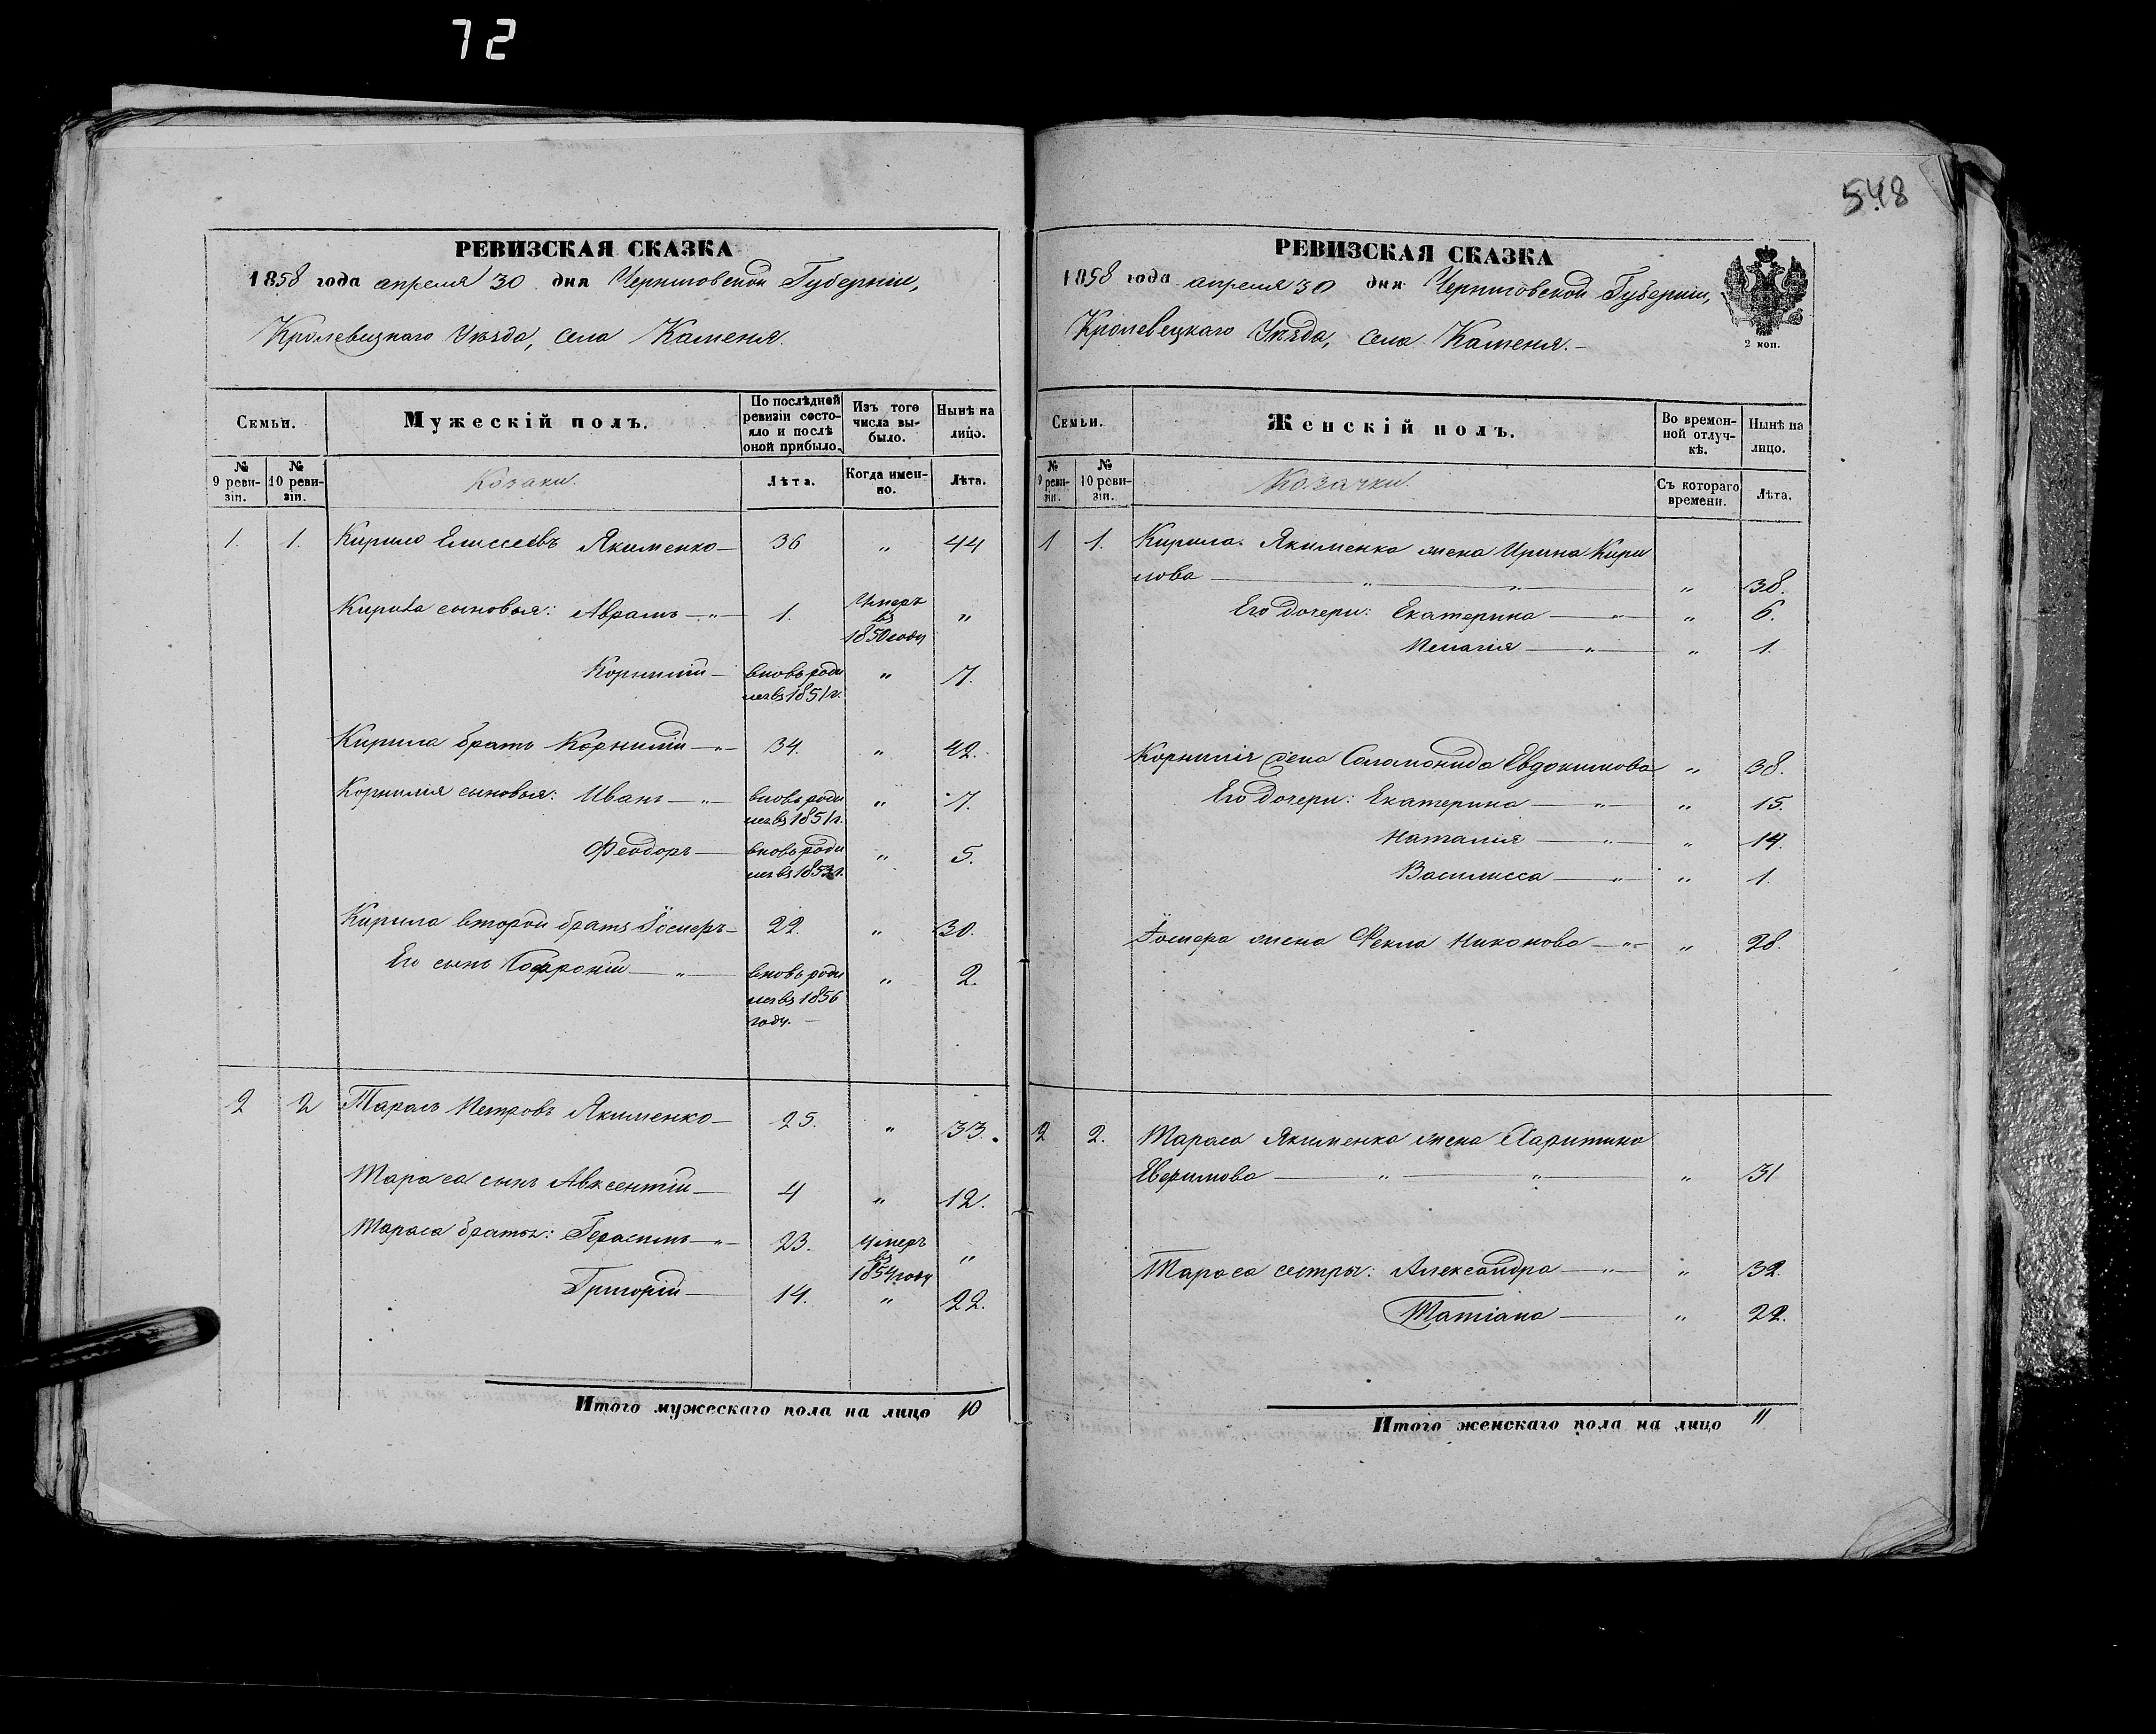 72
548
РЕВИЗСКАЯ СКАЗКА
1858 года апреля 30 дня Черниговской Губерніи,
Кролевецкаго Уѣзда, села Каменя.
Семьи.
Мужескій полъ.
По послѣдней ревизіи состояло и послѣ оной прибыло.
Изъ того числа выбыло.
Нынѣ на лицо.
№ 9 ревизіи.
№ 10 ревизіи.
Козаки.
Лѣта.
Когда именно.
Лѣта.
1. 1. Кирило Елисеевъ Якименко — 36 „ 44
Кирила сыновья: Аврамъ — „ — 1. Умеръ въ 1850 году „
Корнилій — вновь родилсявъ 1851 г. „ 7.
Кирила братъ Корнилій — „ — 34. „ 42.
Корнилія сыновья: Иванъ — „ — вновь родилсявъ 1851 г. „ 7.
Феодоръ — вновь родилсявъ 1853 г. „ 5.
Кирила второй братъ Іосифъ — 22. „ 30.
Его сынъ Софроній — „ — вновь родилсявъ 1856 году. — „ 2.
2 2 Тарасъ Петровъ Якименко — 25. „ 33.
Тараса сынъ Авксентій — 4 „ 12.
Тараса братья: Герасимъ — „ — 23. умеръ въ 1854 году „
Григорій — 14. „ 22.
Итого мужескаго пола на лицо 10
РЕВИЗСКАЯ СКАЗКА
1858 года апреля 30 дня Черниговской Губерніи,
Кролевецкаго Уѣзда, села Каменя. —
2 коп.
Семьи.
Женскій полъ.
Во временной отлучкѣ.
Нынѣ на лицо.
№ 9 ревизіи.
№ 10 ревизіи.
Козачки.
Съ котораго времени.
Лѣта.
1 1. Кирила Якименка жена Ирина Кири
лова — „ — „ — „ 38.
Его дочери: Екатерина — „ — „ 6.
Пелагія — „ — „ 1.
Корнилія жена Саламонида Евдокимова „ 38.
Его дочери: Екатерина — „ — „ 15.
Наталія — „ — „ 14.
Василисса — „ — „ 1.
жена Фекла Никонова — „ — „ 28.
2 2. Тараса Якименка жена Харитина
Евфимова — „ — „ — „ 31
Тараса сестры: Александра — „ — „ 32.
Татіана — „ 22.
Итого женскаго пола на лицо 11